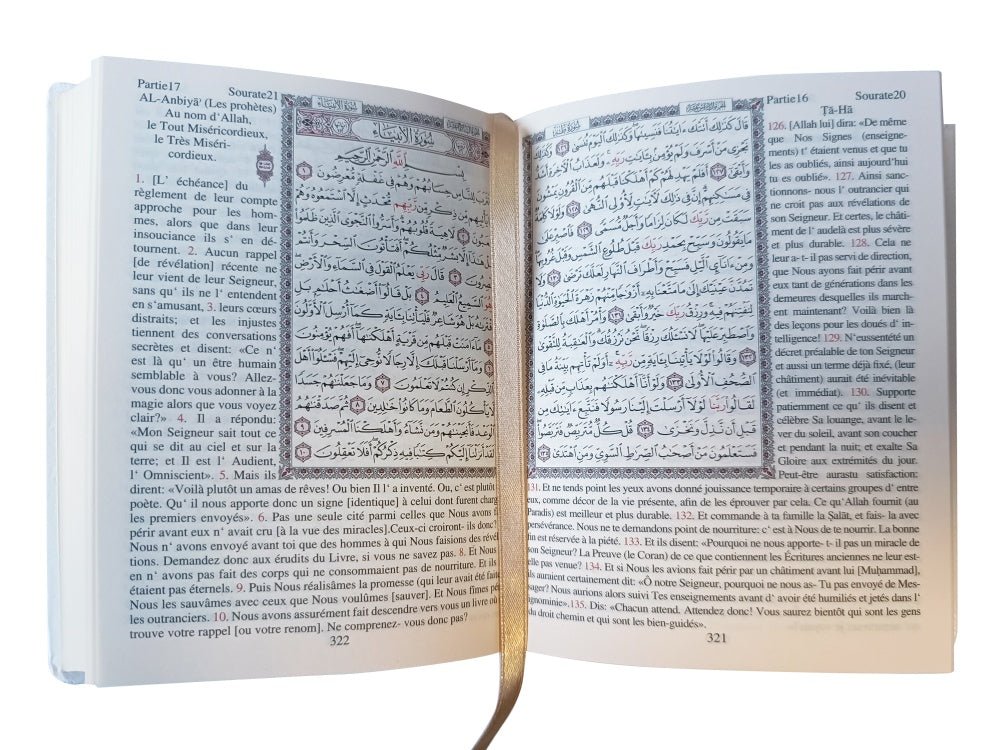 Partie16
Sourate20
Ṭā-Hā
قَالَ كَذَٰلِكَ أَتَتْكَ ءَايَٰتُنَا فَنَسِيتَهَا وَكَذَٰلِكَ ٱلْيَوْمَ تُنسَىٰ ١٢٦
نَجْزِى مَنْ أَسْرَفَ وَلَمْ يُؤْمِنۢ بِـَٔايَٰتِ رَبِّهِۦ وَلَعَذَابُ ٱلْـَٔاخِرَةِ
وَأَبْقَىٰٓ ١٢٧ أَفَلَمْ يَهْدِ لَهُمْ كَمْ أَهْلَكْنَا قَبْلَهُم مِّنَ ٱلْقُرُونِ
فِى مَسَٰكِنِهِمْ إِنَّ فِى ذَٰلِكَ لَـَٔايَٰتٍ لِّأُو۟لِى ٱلنُّهَىٰ ١٢٨ وَلَوْلَا كَلِمَةٌ
سَبَقَتْ مِن رَّبِّكَ لَكَانَ لِزَامًا وَأَجَلٌ مُّسَمًّى ١٢٩ فَٱصْبِرْ عَلَىٰ
مَا يَقُولُونَ وَسَبِّحْ بِحَمْدِ رَبِّكَ قَبْلَ طُلُوعِ ٱلشَّمْسِ وَقَبْلَ غُرُوبِهَا
وَمِنْ ءَانَآئِ ٱلَّيْلِ فَسَبِّحْ وَأَطْرَافَ ٱلنَّهَارِ لَعَلَّكَ تَرْضَىٰ ١٣٠ وَلَا
تَمُدَّنَّ عَيْنَيْكَ إِلَىٰ مَا مَتَّعْنَا بِهِۦٓ أَزْوَٰجًا مِّنْهُمْ زَهْرَةَ ٱلْحَيَوٰةِ ٱلدُّنْيَا
لِنَفْتِنَهُمْ فِيهِ وَرِزْقُ رَبِّكَ خَيْرٌ وَأَبْقَىٰ ١٣١ وَأْمُرْ أَهْلَكَ بِٱلصَّلَوٰةِ
وَٱصْطَبِرْ عَلَيْهَا لَا نَسْـَٔلُكَ رِزْقًا نَّحْنُ نَرْزُقُكَ وَٱلْعَٰقِبَةُ لِلتَّقْوَىٰ
١٣٢ وَقَالُوا۟ لَوْلَا يَأْتِينَا بِـَٔايَةٍ مِّن رَّبِّهِۦٓ أَوَلَمْ تَأْتِهِم بَيِّنَةُ مَا فِى
ٱلصُّحُفِ ٱلْأُولَىٰ ١٣٣ وَلَوْ أَنَّآ أَهْلَكْنَٰهُم بِعَذَابٍ مِّن قَبْلِهِۦ
لَقَالُوا۟ رَبَّنَا لَوْلَآ أَرْسَلْتَ إِلَيْنَا رَسُولًا فَنَتَّبِعَ ءَايَٰتِكَ مِن
قَبْلِ أَن نَّذِلَّ وَنَخْزَىٰ ١٣٤ قُلْ كُلٌّ مُّتَرَبِّصٌ فَتَرَبَّصُوا۟
فَسَتَعْلَمُونَ مَنْ أَصْحَٰبُ ٱلصِّرَٰطِ ٱلسَّوِىِّ وَمَنِ ٱهْتَدَىٰ ١٣٥
126. [Allah lui] dira: «De même
que Nos Signes (enseigne-
ments) t' étaient venus et que tu
les as oubliés, ainsi aujourd'hui
tu es oublié». 127. Ainsi sanc-
tionnons- nous l' outrancier qui
ne croit pas aux révélations de
son Seigneur. Et certes, le châti-
ment de l' audelà est plus sévère
et plus durable. 128. Cela ne
leur a- t- il pas servi de direction,
que Nous ayons fait périr avant
eux tant de générations dans les
demeures desquelles ils march-
ent maintenant? Voilà bien là
des leçons pour les doués d' in-
telligence! 129. N'eussentété un
décret préalable de ton Seigneur
et aussi un terme déjà fixé, (leur
châtiment) aurait été inévitable
(et immédiat). 130. Supporte
patiemment ce qu' ils disent et
célèbre Sa louange, avant le le-
ver du soleil, avant son coucher
et pendant la nuit; et exalte Sa
Gloire aux extrémités du jour.
Peut-être auras­tu satisfaction:
131. Et ne tends point les yeux avons donné jouissance temporaire à certains groupes d' entre
eux, comme décor de la vie présente, afin de les éprouver par cela. Ce qu'Allah fournit (au
Paradis) est meilleur et plus durable. 132. Et commande à ta famille la Ṣalāt, et fais- la avec
persévérance. Nous ne te demandons point de nourriture: c' est à Nous de te nourrir. La bonne
fin est réservée à la piété. 133. Et ils disent: «Pourquoi ne nous apporte- t- il pas un miracle de
son Seigneur? La Preuve (le Coran) de ce que contiennent les Écritures anciennes ne leur est-
elle pas venue? 134. Et si Nous les avions fait périr par un châtiment avant lui [Muḥammad],
ils auraient certainement dit: «Ô notre Seigneur, pourquoi ne nous as- Tu pas envoyé de Mes-
sager? Nous aurions alors suivi Tes enseignements avant d' avoir été humiliés et jetés dans l'
ignominie».135. Dis: «Chacun attend. Attendez donc! Vous saurez bientôt qui sont les gens
du droit chemin et qui sont les bien-guidés».
321
Partie17
Sourate21
AL-Anbiyā' (Les prohètes)
Au nom d'Allah,
le Tout Miséricordieux,
le Très Miséri-
cordieux.
سُورَةُ الأَنبِيَاءِ
بِسْمِ ٱللَّهِ ٱلرَّحْمَٰنِ ٱلرَّحِيمِ
لِلنَّاسِ حِسَابُهُمْ وَهُمْ فِى غَفْلَةٍ مُّعْرِضُونَ ١
مِّن ذِكْرٍ مِّن رَّبِّهِم مُّحْدَثٍ إِلَّا ٱسْتَمَعُوهُ وَهُمْ
لَاهِيَةً قُلُوبُهُمْ وَأَسَرُّوا۟ ٱلنَّجْوَى ٱلَّذِينَ ظَلَمُوا۟
هَٰذَآ إِلَّا بَشَرٌ مِّثْلُكُمْ أَفَتَأْتُونَ ٱلسِّحْرَ وَأَنتُمْ
٣ قَالَ رَبِّى يَعْلَمُ ٱلْقَوْلَ فِى ٱلسَّمَآءِ وَٱلْأَرْضِ
ٱلسَّمِيعُ ٱلْعَلِيمُ ٤ بَلْ قَالُوٓا۟ أَضْغَٰثُ أَحْلَٰمٍ بَلِ
ٱفْتَرَىٰهُ بَلْ هُوَ شَاعِرٌ فَلْيَأْتِنَا بِـَٔايَةٍ كَمَآ أُرْسِلَ ٱلْأَوَّلُونَ
مَآ ءَامَنَتْ قَبْلَهُم مِّن قَرْيَةٍ أَهْلَكْنَٰهَآ أَفَهُمْ يُؤْمِنُونَ
وَمَآ أَرْسَلْنَا قَبْلَكَ إِلَّا رِجَالًا نُّوحِىٓ إِلَيْهِمْ فَسْـَٔلُوٓا۟ أَهْلَ
ٱلذِّكْرِ إِن كُنتُمْ لَا تَعْلَمُونَ ٧ وَمَا جَعَلْنَٰهُمْ جَسَدًا
لَّا يَأْكُلُونَ ٱلطَّعَامَ وَمَا كَانُوا۟ خَٰلِدِينَ ٨ ثُمَّ صَدَقْنَٰهُمُ
ٱلْوَعْدَ فَأَنجَيْنَٰهُمْ وَمَن نَّشَآءُ وَأَهْلَكْنَا ٱلْمُسْرِفِينَ ٩
لَقَدْ أَنزَلْنَآ إِلَيْكُمْ كِتَٰبًا فِيهِ ذِكْرُكُمْ أَفَلَا تَعْقِلُونَ ١٠
1. [L' échéance] du
règlement de leur compte
approche pour les hom-
mes, alors que dans leur
insouciance ils s' en dé-
tournent. 2. Aucun rappel
[de révélation] récente ne
leur vient de leur Seigneur,
sans qu' ils ne l' entendent
en s'amusant, 3. leurs cœurs
distraits; et les injustes
tiennent des conversations
secrètes et disent: «Ce n'
est là qu' un être humain
semblable à vous? Allez-
vous donc vous adonner à la
magie alors que vous voyez
clair?» 4. Il a répondu:
«Mon Seigneur sait tout ce
qui se dit au ciel et sur la
terre; et Il est l' Audient,
l' Omniscient». 5. Mais ils
dirent: «Voilà plutôt un amas de rêves! Ou bien Il l' a inventé. Ou, c' est plutôt
poète. Qu' il nous apporte donc un signe [identique] à celui dont furent
les premiers envoyés». 6. Pas une seule cité parmi celles que Nous avons
périr avant eux n' avait cru [à la vue des miracles].Ceux-ci croiront- ils donc?
Nous n' avons envoyé avant toi que des hommes à qui Nous faisions des
tions. Demandez donc aux érudits du Livre, si vous ne savez pas. 8. Et Nous
en n' avons pas fait des corps qui ne consommaient pas de nourriture. Et ils
étaient pas éternels. 9. Puis Nous réalisâmes la promesse (qui leur avait été
Nous les sauvâmes avec ceux que Nous voulûmes [sauver]. Et Nous fîmes
les outranciers. 10. Nous avons assurément fait descendre vers vous un livre où
trouve votre rappel [ou votre renom]. Ne comprenez- vous donc pas?
322